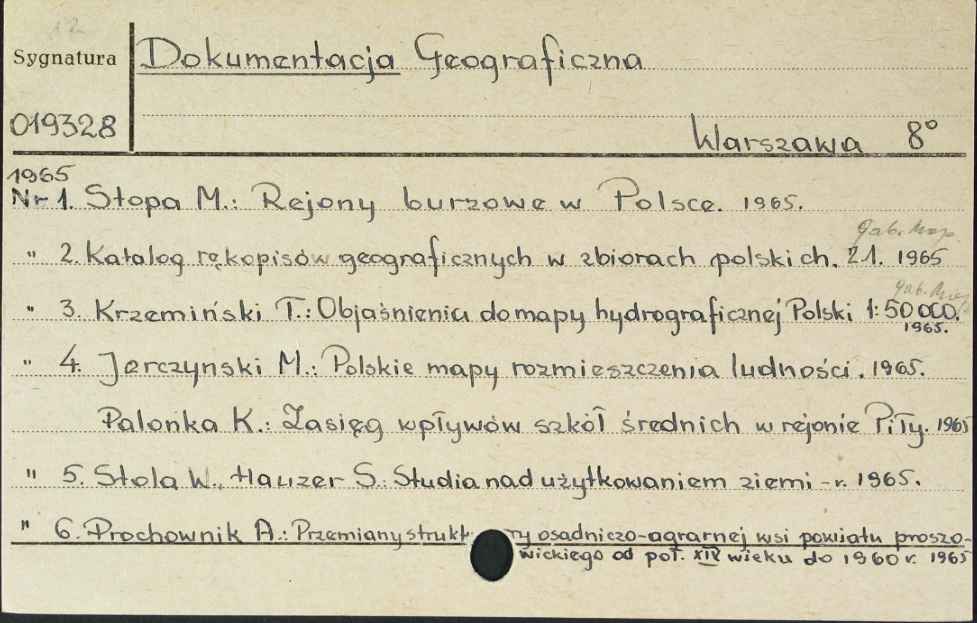 Sygnatura
Dokumentacja Geograficzna
019328
Warszawa 8°
1965
Nr 1. Stopa M.: Rejony burzowe w Polsce. 1965.
Gab. Map.
" 2. Katalog rękopisów geograficznych w zbiorach polskich. Z 1. 1965
Gab. Map.
" 3. Krzemiński T.: Objaśnienia do mapy hydrograficznej Polski 1:50 000.
1965.
" 4. Jerczyński M.: Polskie mapy rozmieszczenia ludności. 1965.
Palonka K.: Zasięg wpływów szkół średnich w rejonie Piły. 1965
" 5. Stola W., Hauzer S.: Studia nad użytkowaniem ziemi - r. 1965.
" 6. Prochownik A.: Przemiany strukt ry osadniczo-agrarnej wsi powiatu proszo-
wickiego od poł. XIX wieku do 1960 r. 1965